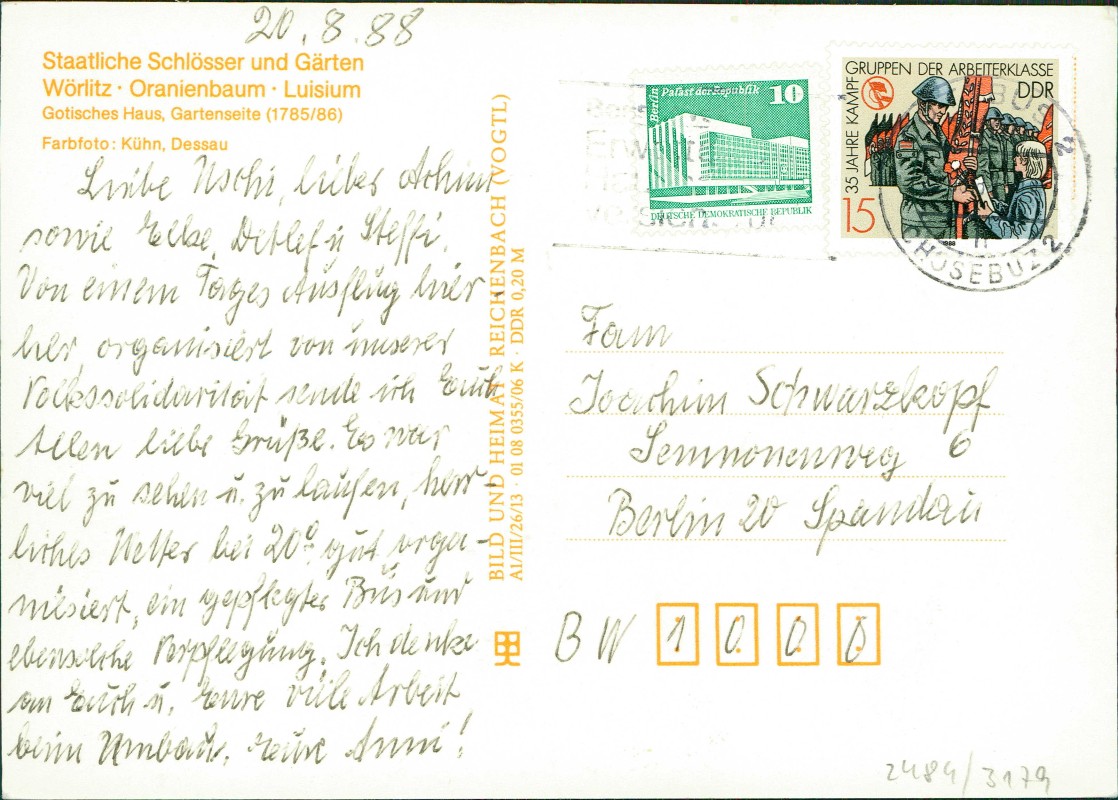 20.8.88
Staatliche Schlösser und Gärten
Wörlitz · Oranienbaum · Luisium
Gotisches Haus, Gartenseite (1785/86)
Farbfoto: Kühn, Dessau
Liebe Uschi, lieber Achim
sowie Elke, Detlef u Steffi.
Von einem Tages Ausflug hier-
her, organisiert von unserer
Volkssolidarität sende ich Euch
Allen liebe Grüße. Es war
viel zu sehen u. zu laufen, herr-
liches Wetter bei 20° gut orga-
nisiert, ein gepflegter Bus und
ebensolche Verpflegung. Ich denke
an Euch u. Eure viele Arbeit
beim Umbau. Eure Anni!
BILD UND HEIMAT · REICHENBACH (VOGTL)
A1/III/26/13 · 01 08 0355/06 K · DDR 0,20 M
Berlin Palast der Republik 10
DEUTSCHE DEMOKRATISCHE REPUBLIK
35 JAHRE KAMPFGRUPPEN DER ARBEITERKLASSE
DDR
15
1988
CHOSEBUZ 2
Fam
Joachim Schwarzkopf
Semnonenweg 6
Berlin 20 Spandau
BW 1000
2484/3179